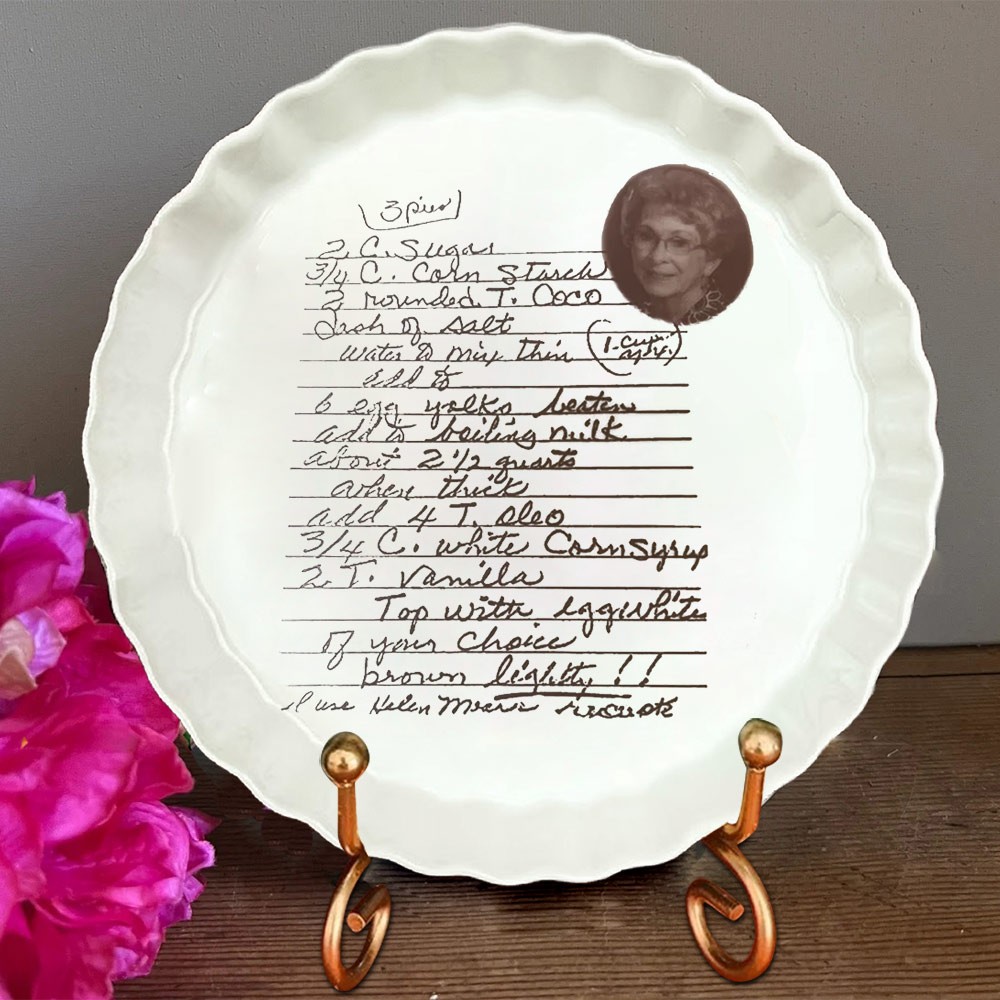 3 pies
2 C. Sugar
3/4 C. Corn Starch
2 rounded T. Coco
Dash of salt
water to mix thin (1 cup
add to
6 egg yolks beaten
add to boiling milk
about 2 1/2 quarts
when thick
add 4 T. oleo
3/4 C. white Corn Syrup
2 T. Vanilla
Top with egg white
of your Choice
brown lightly!!
I use Helen